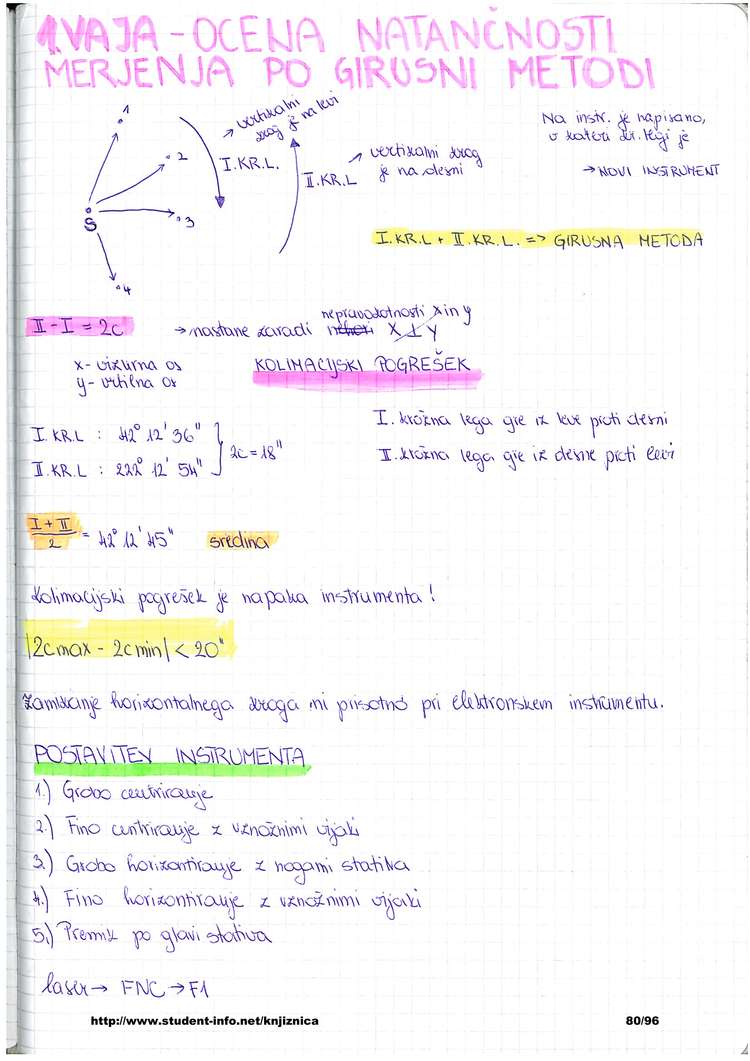 1. VAJA - OCENA NATANČNOSTI
MERJENJA PO GIRUSNI METODI
1
2
3
4
S
I. KR. L.
→ vertikalni
krog je na levi
II. KR. L
→ vertikalni krog
je na desni
Na instr. je napisano,
v kateri kr. legi je
→ NOVI INSTRUMENT
I. KR. L + II. KR. L. => GIRUSNA METODA
II - I = 2c
→ nastane zaradi nepravokotnosti x in y
X ⊥ Y
x - vizurna os
y - vrtilna os
KOLIMACIJSKI POGREŠEK
I. KR. L : 42° 12' 36"
II. KR. L : 222° 12' 54"
2c = 18"
I. krožna lega gre iz leve proti desni
II. krožna lega gre iz desne proti levi
I + II
2
= 42° 12' 45"
sredina
Kolimacijski pogrešek je napaka instrumenta!
|2c max - 2c min| < 20"
Zamikanje horizontalnega kroga ni prisotno pri elektronskem instrumentu.
POSTAVITEV INSTRUMENTA
1.) Grobo centriranje
2.) Fino centriranje z vznožnimi vijaki
3.) Grobo horizontiranje z nogami stativa
4.) Fino horizontiranje z vznožnimi vijaki
5.) Premik po glavi stativa
laser → FNC → F1
http://www.student-info.net/knjiznica
80/96